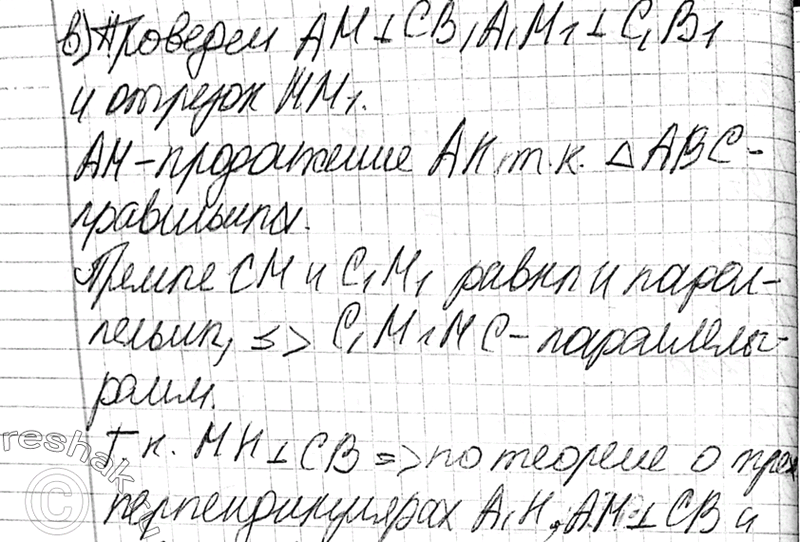 в) Проведем AM⊥CB, A₁M₁⊥C₁B₁
и отрезок MM₁.
AM - продолжение AH, т.к. △ABC -
правильный.
CM и C₁M₁ равны и парал-
лельны, => C₁M₁MC - параллелог-
рамм.
Т.к. MH⊥CB => по теореме о трех
перпендикулярах A₁H, AM⊥CB и
reshak.ru
©